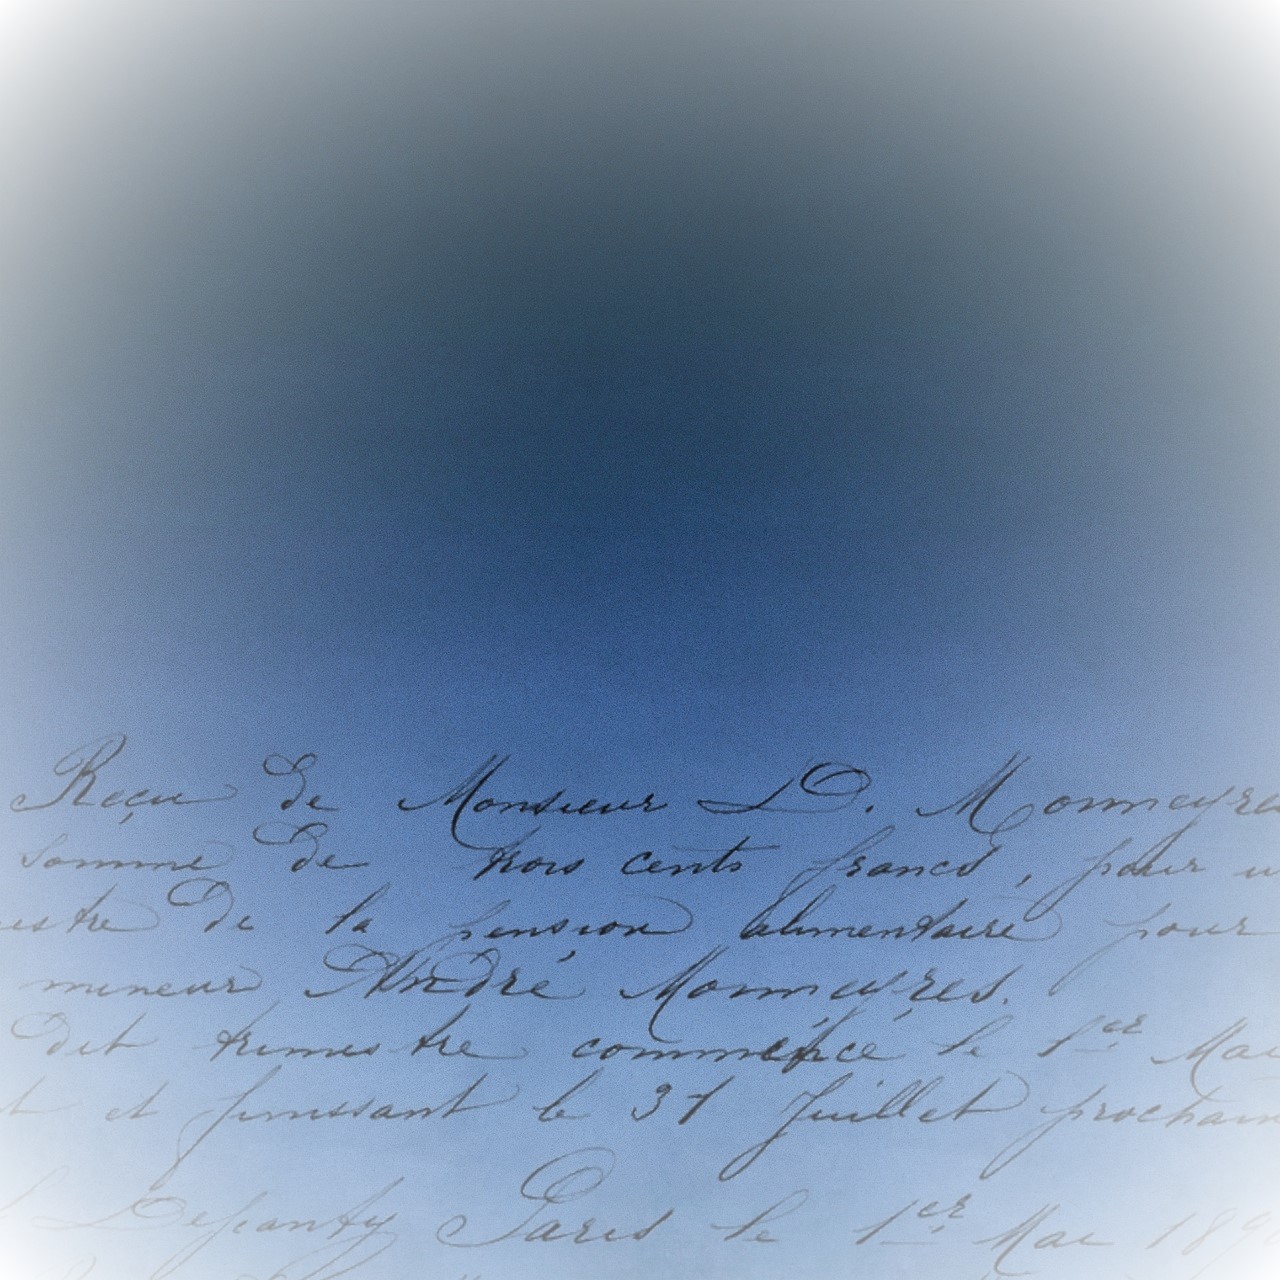 Reçu de Monsieur D. Monneyre
Somme de trois cents francs, pour u
estre de la pension alimentaire pour
mineur André Monneyres.
Dit trimestre commencé le 1er Mai
t et finissant le 31 Juillet prochain
Paris le 1er Mai 189